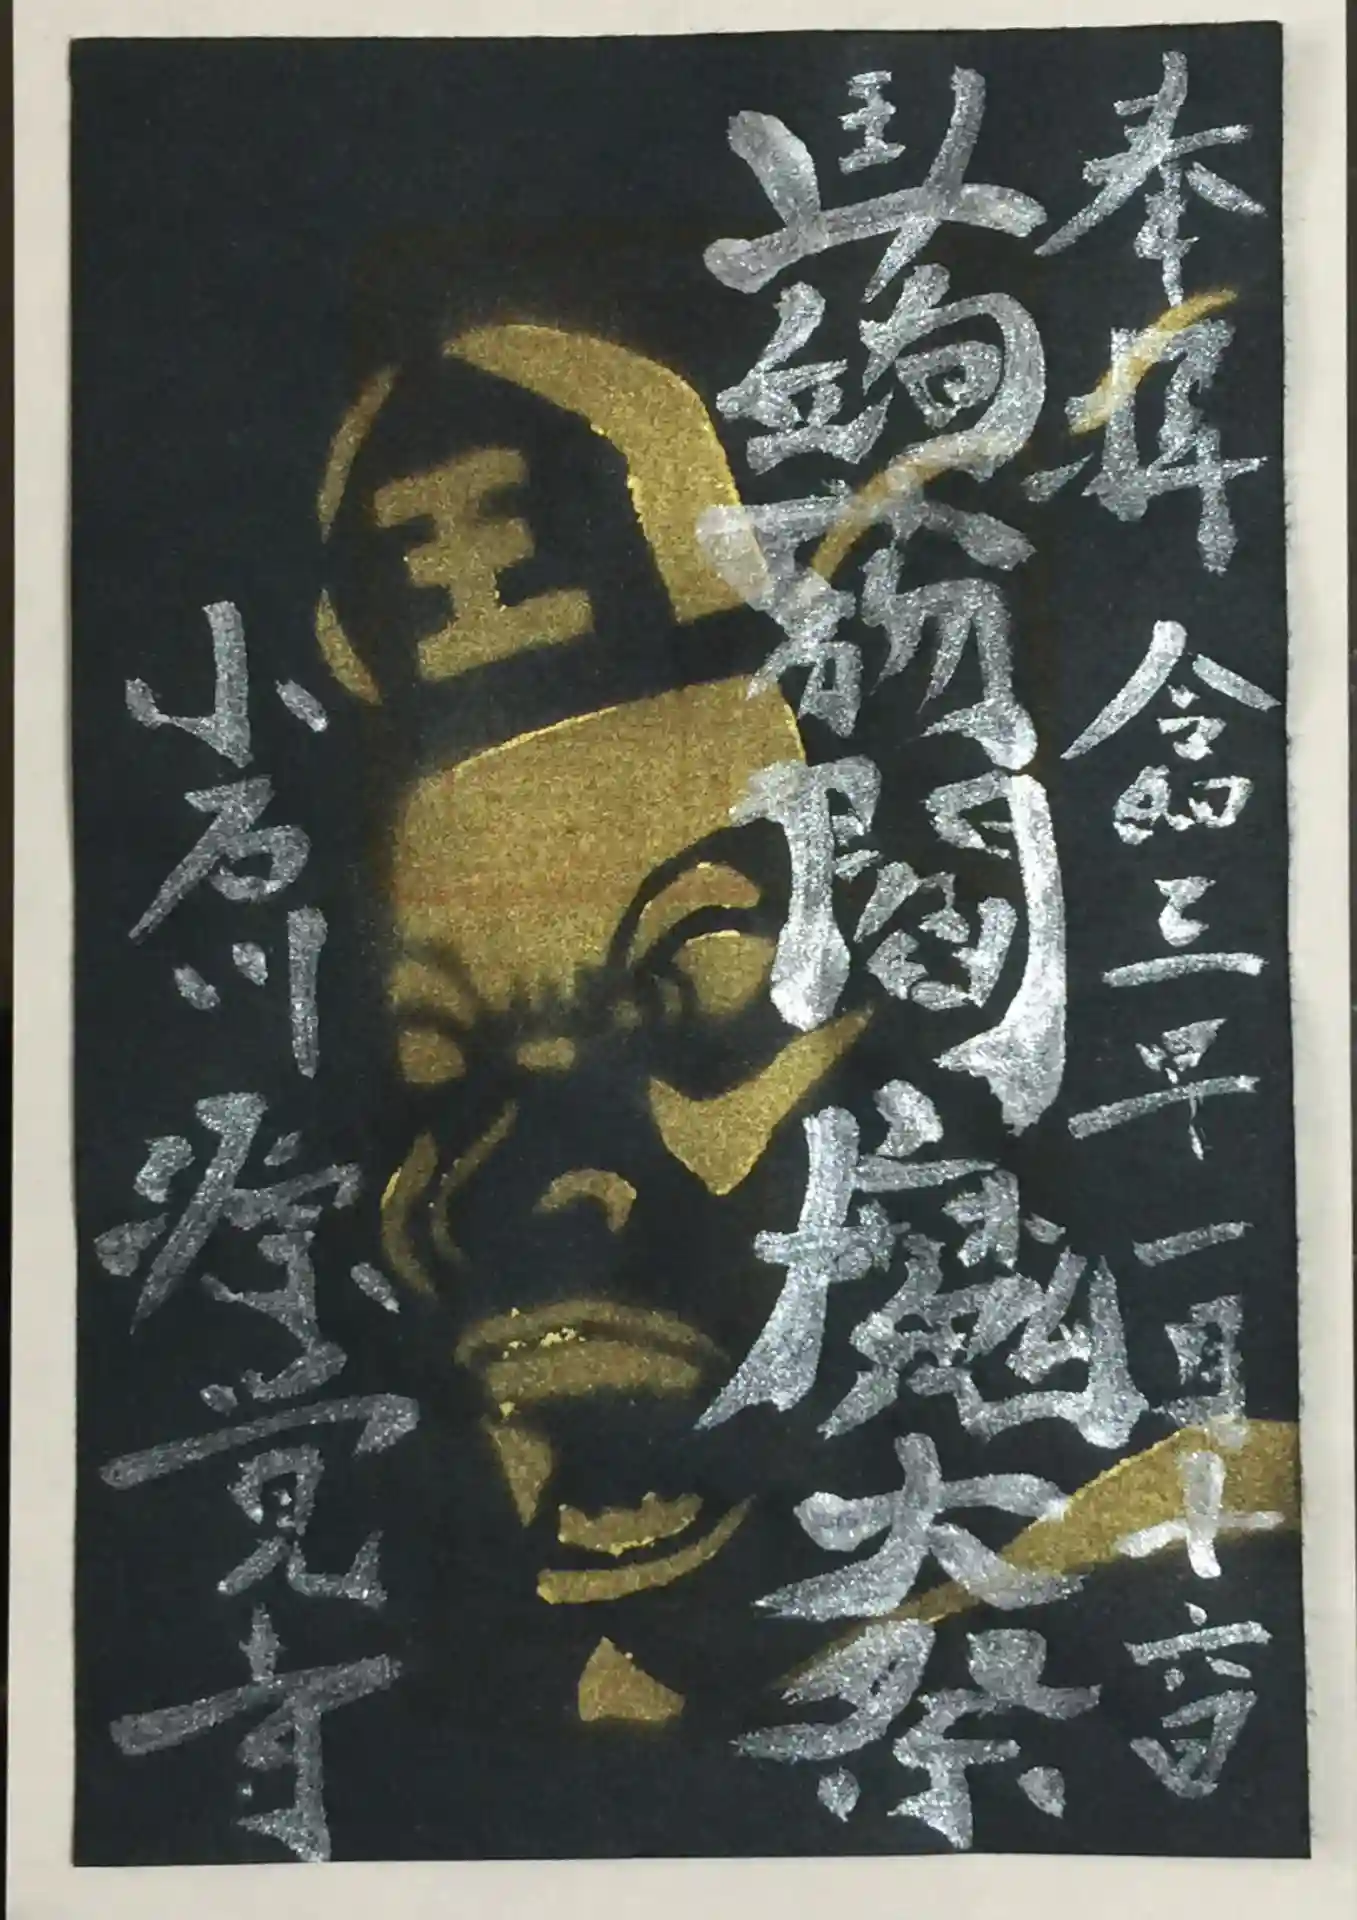 奉拝 令和三年 一月十六日
蒟蒻閻魔大祭
王
小石川 源覚寺